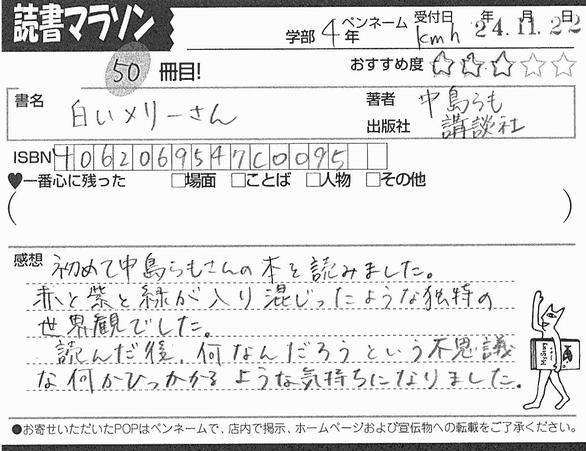 読書マラソン
50 冊目!
学部 4年 ペンネーム kmh 受付日 24.年11.月22日
おすすめ度 ☆☆☆☆☆
書名 白いメリーさん
著者 中島らも
出版社 講談社
ISBN 4062069547C0095
♥一番心に残った □場面 □ことば □人物 □その他
( )
感想 初めて中島らもさんの本を読みました。
赤と紫と緑が入り混じったような独特の
世界観でした。
読んだ後、何なんだろうという不思議
な何かひっかかるような気持ちになりました。
●お寄せいただいたPOPはペンネームで、店内で掲示、ホームページおよび宣伝物への転載をご了承ください。